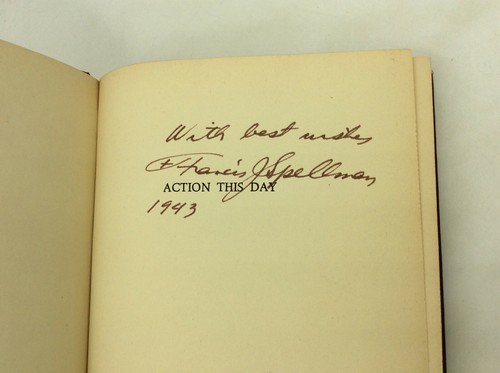 With best wishes
+ Francis J Spellman
ACTION THIS DAY
1943